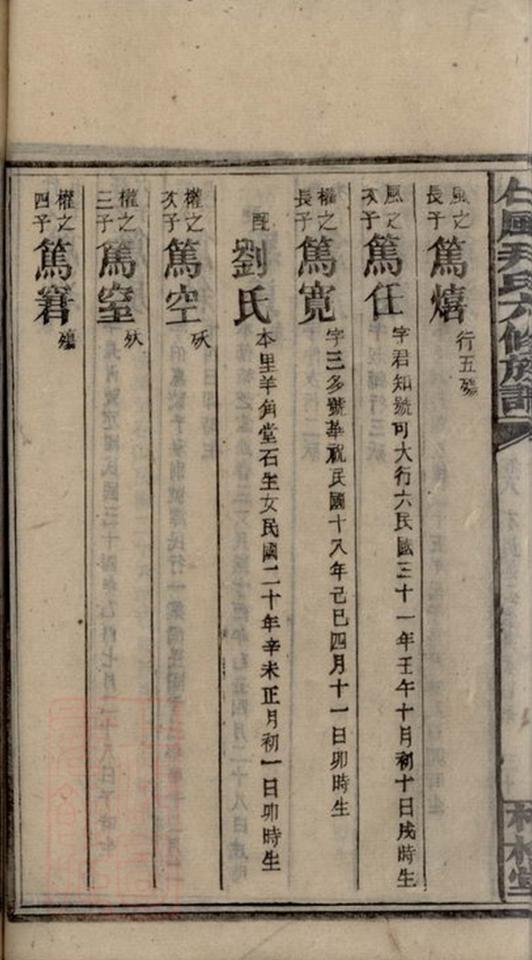 石風尹氏六修族譜
和林堂
風之長子 篤熺 行五殤
風之次子 篤任 字君知號可大行六民國三十一年壬午十月初十日戌時生
權之長子 篤寬 字三多號華祝民國十八年己巳四月十一日卯時生
配 劉氏 本里羊角堂石生女民國二十年辛未正月初一日卯時生
權之次子 篤空 殀
權之三子 篤窒 殀
權之四子 篤窘 殤